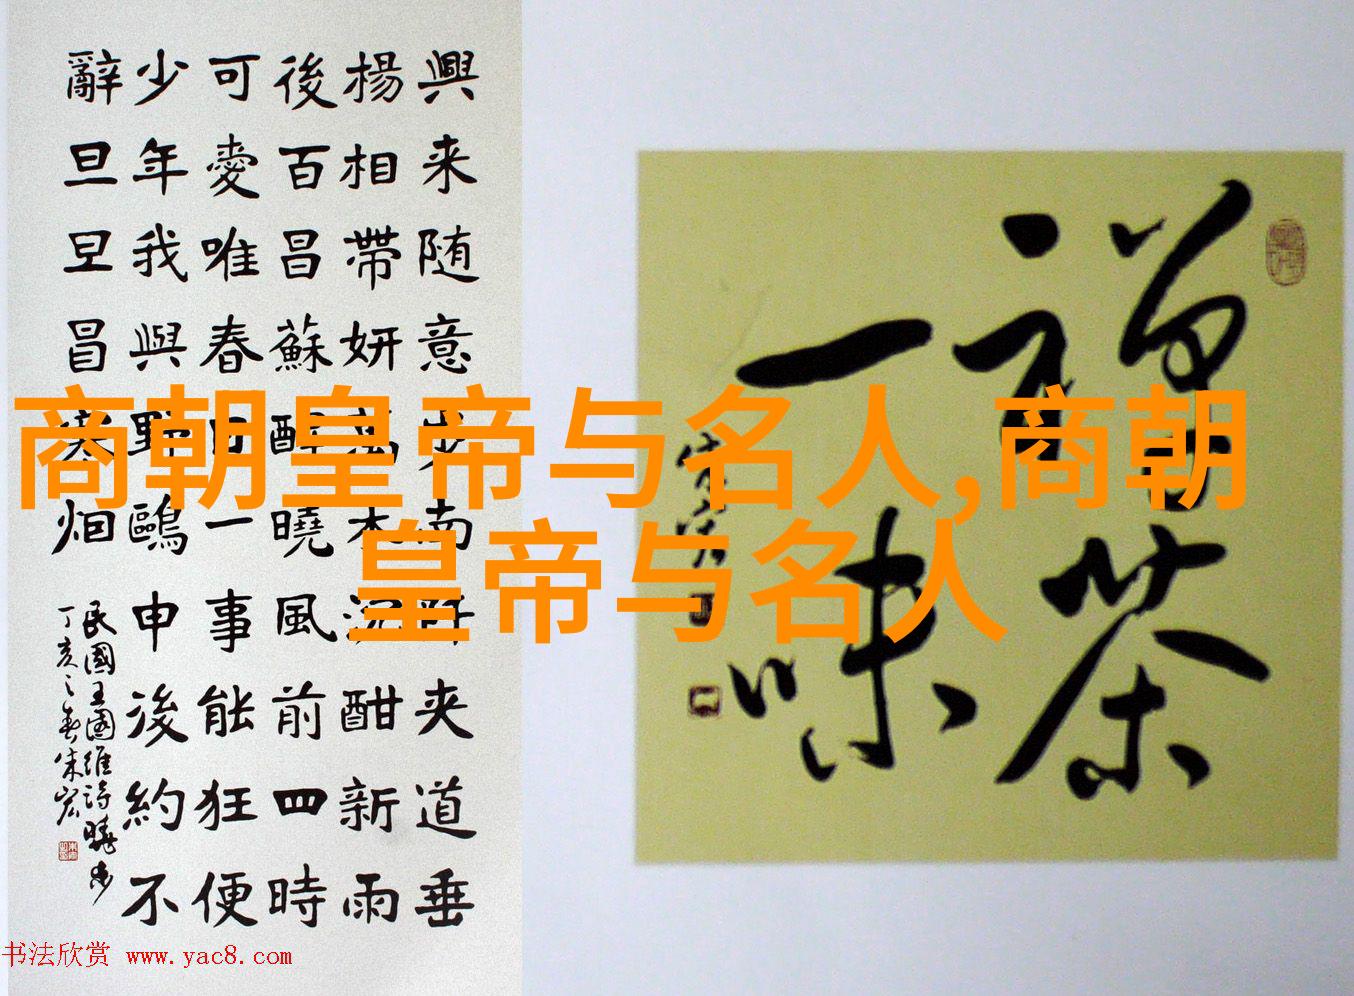 興来随意步南阡夹道垂
楊相帶妍萬木沉酣新雨
後百昌蘇醒曉風前四時
可愛唯春日一事能狂便
少年我與野鷗申後約不
辭旦旦冒寒烟
民國王國維詩曉步
丁亥之春朱宏
禅茶
一味
商朝皇帝与名人,商朝
皇帝与名人
书法欣赏 www.yac8.com